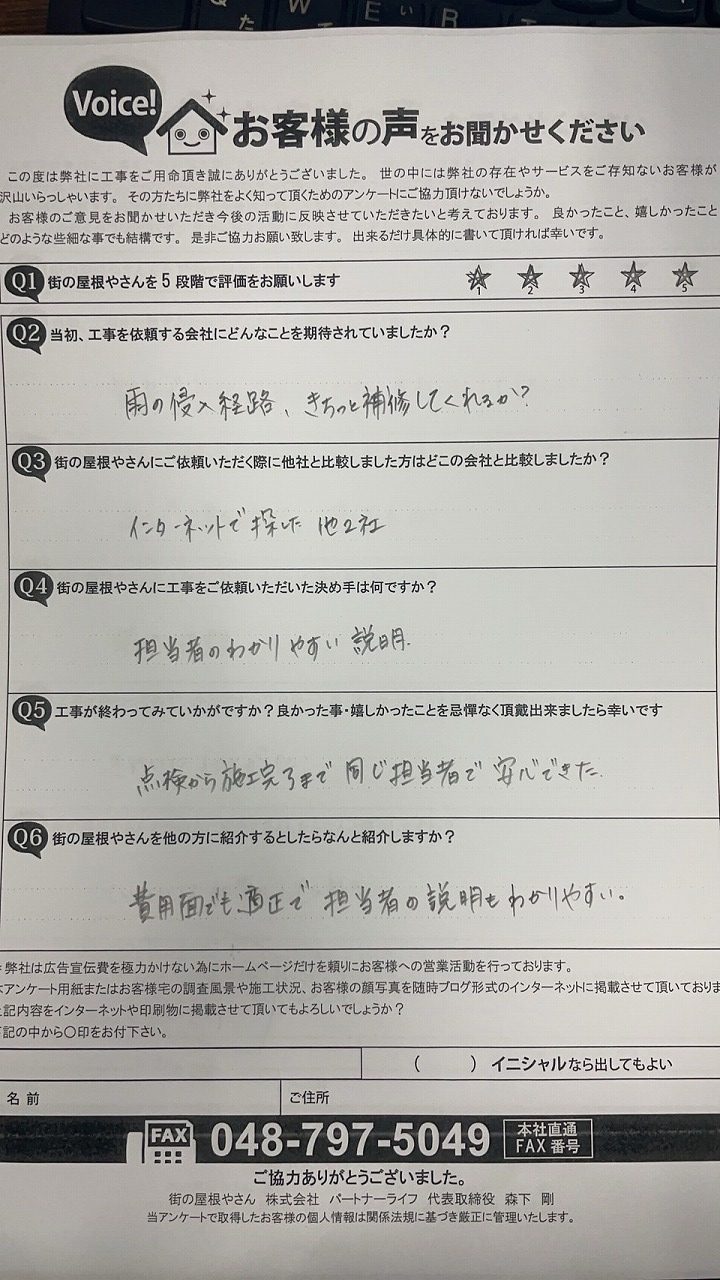 Q た W E い R
Voice!
お客様の声をお聞かせください
この度は弊社に工事をご用命頂き誠にありがとうございました。 世の中には弊社の存在やサービスをご存知ないお客様が
沢山いらっしゃいます。 その方たちに弊社をよく知って頂くためのアンケートにご協力頂けないでしょうか。
お客様のご意見をお聞かせいただき今後の活動に反映させていただきたいと考えております。 良かったこと、嬉しかったこと
どのような些細な事でも結構です。 是非ご協力お願い致します。 出来るだけ具体的に書いて頂ければ幸いです。
Q1 街の屋根やさんを5段階で評価をお願いします 1 2 3 4 5
Q2 当初、工事を依頼する会社にどんなことを期待されていましたか？
雨の侵入経路、きちっと補修してくれるか?
Q3 街の屋根やさんにご依頼いただく際に他社と比較しました方はどこの会社と比較しましたか？
インターネットで探した 他2社
Q4 街の屋根やさんに工事をご依頼いただいた決め手は何ですか？
担当者のわかりやすい説明.
Q5 工事が終わってみていかがですか？良かった事・嬉しかったことを忌憚なく頂戴出来ましたら幸いです
点検から施工完了まで 同じ担当者で 安心できた.
Q6 街の屋根やさんを他の方に紹介するとしたらなんと紹介しますか？
費用面でも適正で 担当者の説明もわかりやすい。
弊社は広告宣伝費を極力かけない為にホームページだけを頼りにお客様への営業活動を行っております。
アンケート用紙またはお客様宅の調査風景や施工状況、お客様の顔写真を随時ブログ形式のインターネットに掲載させて頂いておりま
記内容をインターネットや印刷物に掲載させて頂いてもよろしいでしょうか？
記の中から〇印をお付下さい。
（ ）イニシャルなら出してもよい
名前 ご住所
FAX 048-797-5049 本社直通 FAX番号
ご協力ありがとうございました。
街の屋根やさん 株式会社 パートナーライフ 代表取締役 森下 剛
当アンケートで取得したお客様の個人情報は関係法規に基づき厳正に管理いたします。